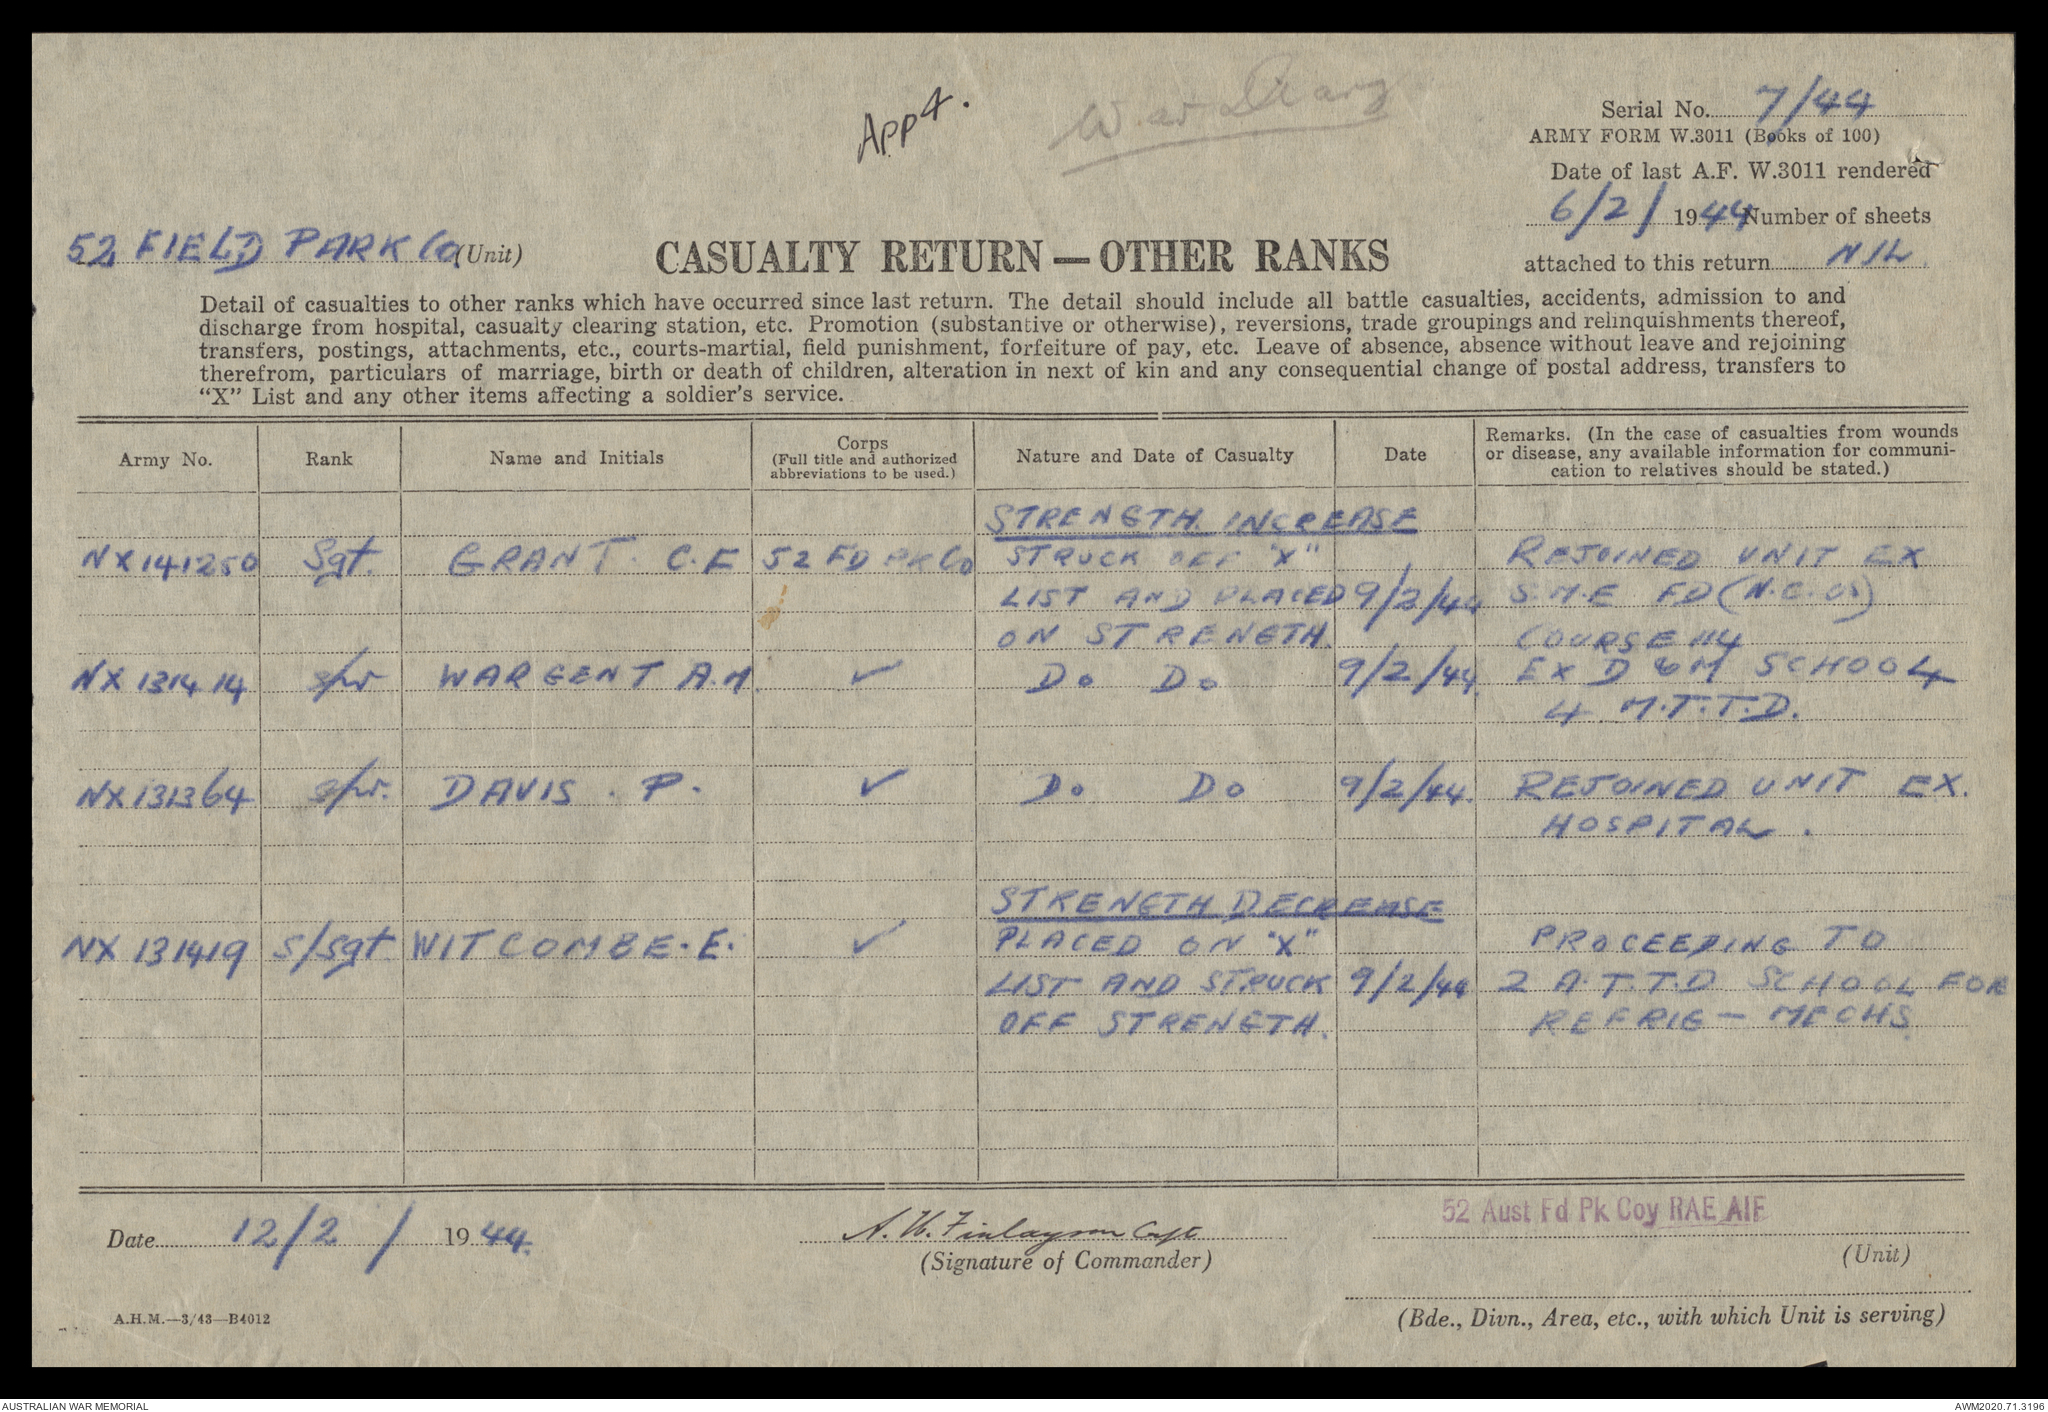 App 4.
War Diary
Serial No. 7/44
ARMY FORM W.3011 (Books of 100)
Date of last A.F. W.3011 rendered
6/2/ 1944 Number of sheets
attached to this return NIL
52 FIELD PARK Co (Unit)
CASUALTY RETURN — OTHER RANKS
Detail of casualties to other ranks which have occurred since last return. The detail should include all battle casualties, accidents, admission to and
discharge from hospital, casualty clearing station, etc. Promotion (substantive or otherwise), reversions, trade groupings and relinquishments thereof,
transfers, postings, attachments, etc., courts-martial, field punishment, forfeiture of pay, etc. Leave of absence, absence without leave and rejoining
therefrom, particulars of marriage, birth or death of children, alteration in next of kin and any consequential change of postal address, transfers to
"X" List and any other items affecting a soldier's service.
Army No. Rank Name and Initials Corps (Full title and authorized abbreviations to be used.) Nature and Date of Casualty Date Remarks. (In the case of casualties from wounds or disease, any available information for communi- cation to relatives should be stated.)
STRENGTH INCREASE
NX 141250 Sgt. GRANT. C.E 52 FD PK Co STRUCK OFF "X" REJOINED UNIT EX
LIST AND PLACED 9/2/44 S.M.E FD (N.C.Os)
ON STRENGTH. COURSE 114
NX 131414 Spr WARGENT A.M. ✓ Do Do 9/2/44. EX D & M SCHOOL
4 M.T.T.D.
NX 131364 Spr. DAVIS. P. ✓ Do Do 9/2/44. REJOINED UNIT EX.
HOSPITAL.
STRENGTH DECREASE
NX 131419 S/Sgt WITCOMBE. E. ✓ PLACED ON "X" PROCEEDING TO
LIST AND STRUCK 9/2/44 2 A.T.T.D SCHOOL FOR
OFF STRENGTH. REFRIG - MECHS
Date 12/2/ 1944. A. W. Finlayson Capt 52 Aust Fd Pk Coy RAE AIF
(Signature of Commander) (Unit)
A.H.M.—3/43—B4012
(Bde., Divn., Area, etc., with which Unit is serving)
AUSTRALIAN WAR MEMORIAL AWM2020.71.3196